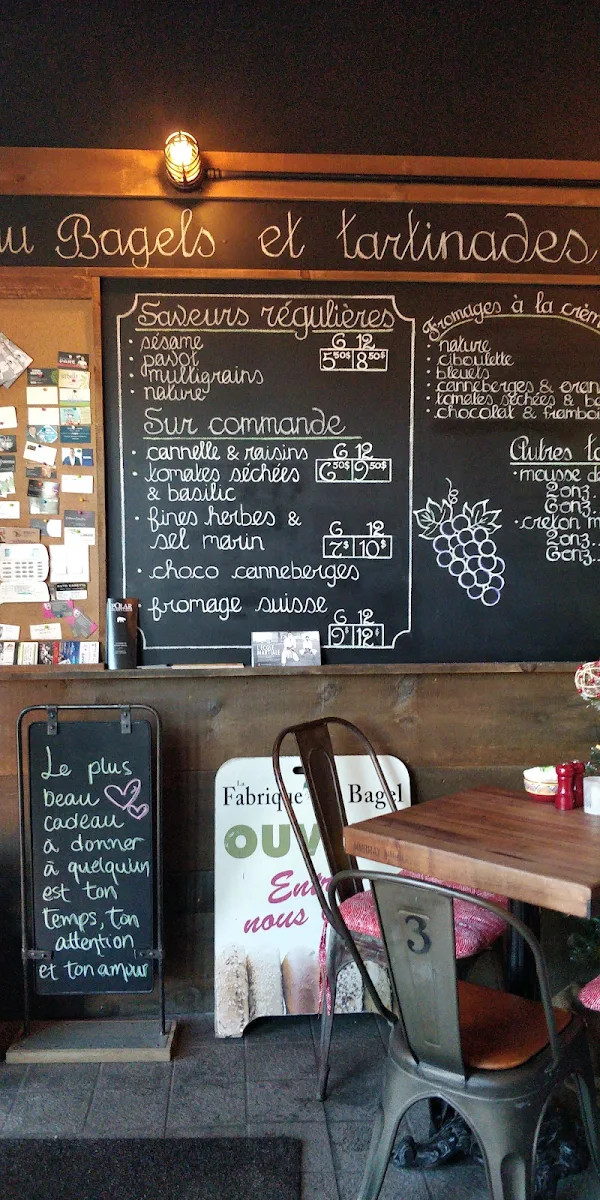 Bagels et tartinades
Saveurs régulières
• sésame
6 12
• pavot
5 50$ 8 50$
• multigrains
• nature
Sur commande
• cannelle & raisins
6 12
• tomates séchées
6 50$ 9 50$
& basilic
• fines herbes &
6 12
sel marin
7$ 10$
• choco canneberges
• fromage suisse
6 12
9$ 12$
Fromages à la
• nature
• ciboulette
• bleuets
• canneberges &
• tomates séchées &
• chocolat &
Autres
• mousse
2onz..
6onz..
• creton
2onz..
6onz..
Le plus
beau
cadeau
à donner
à quelqu'un
est ton
temps, ton
attention
et ton amour
La
Fabrique Bagel
nous
3